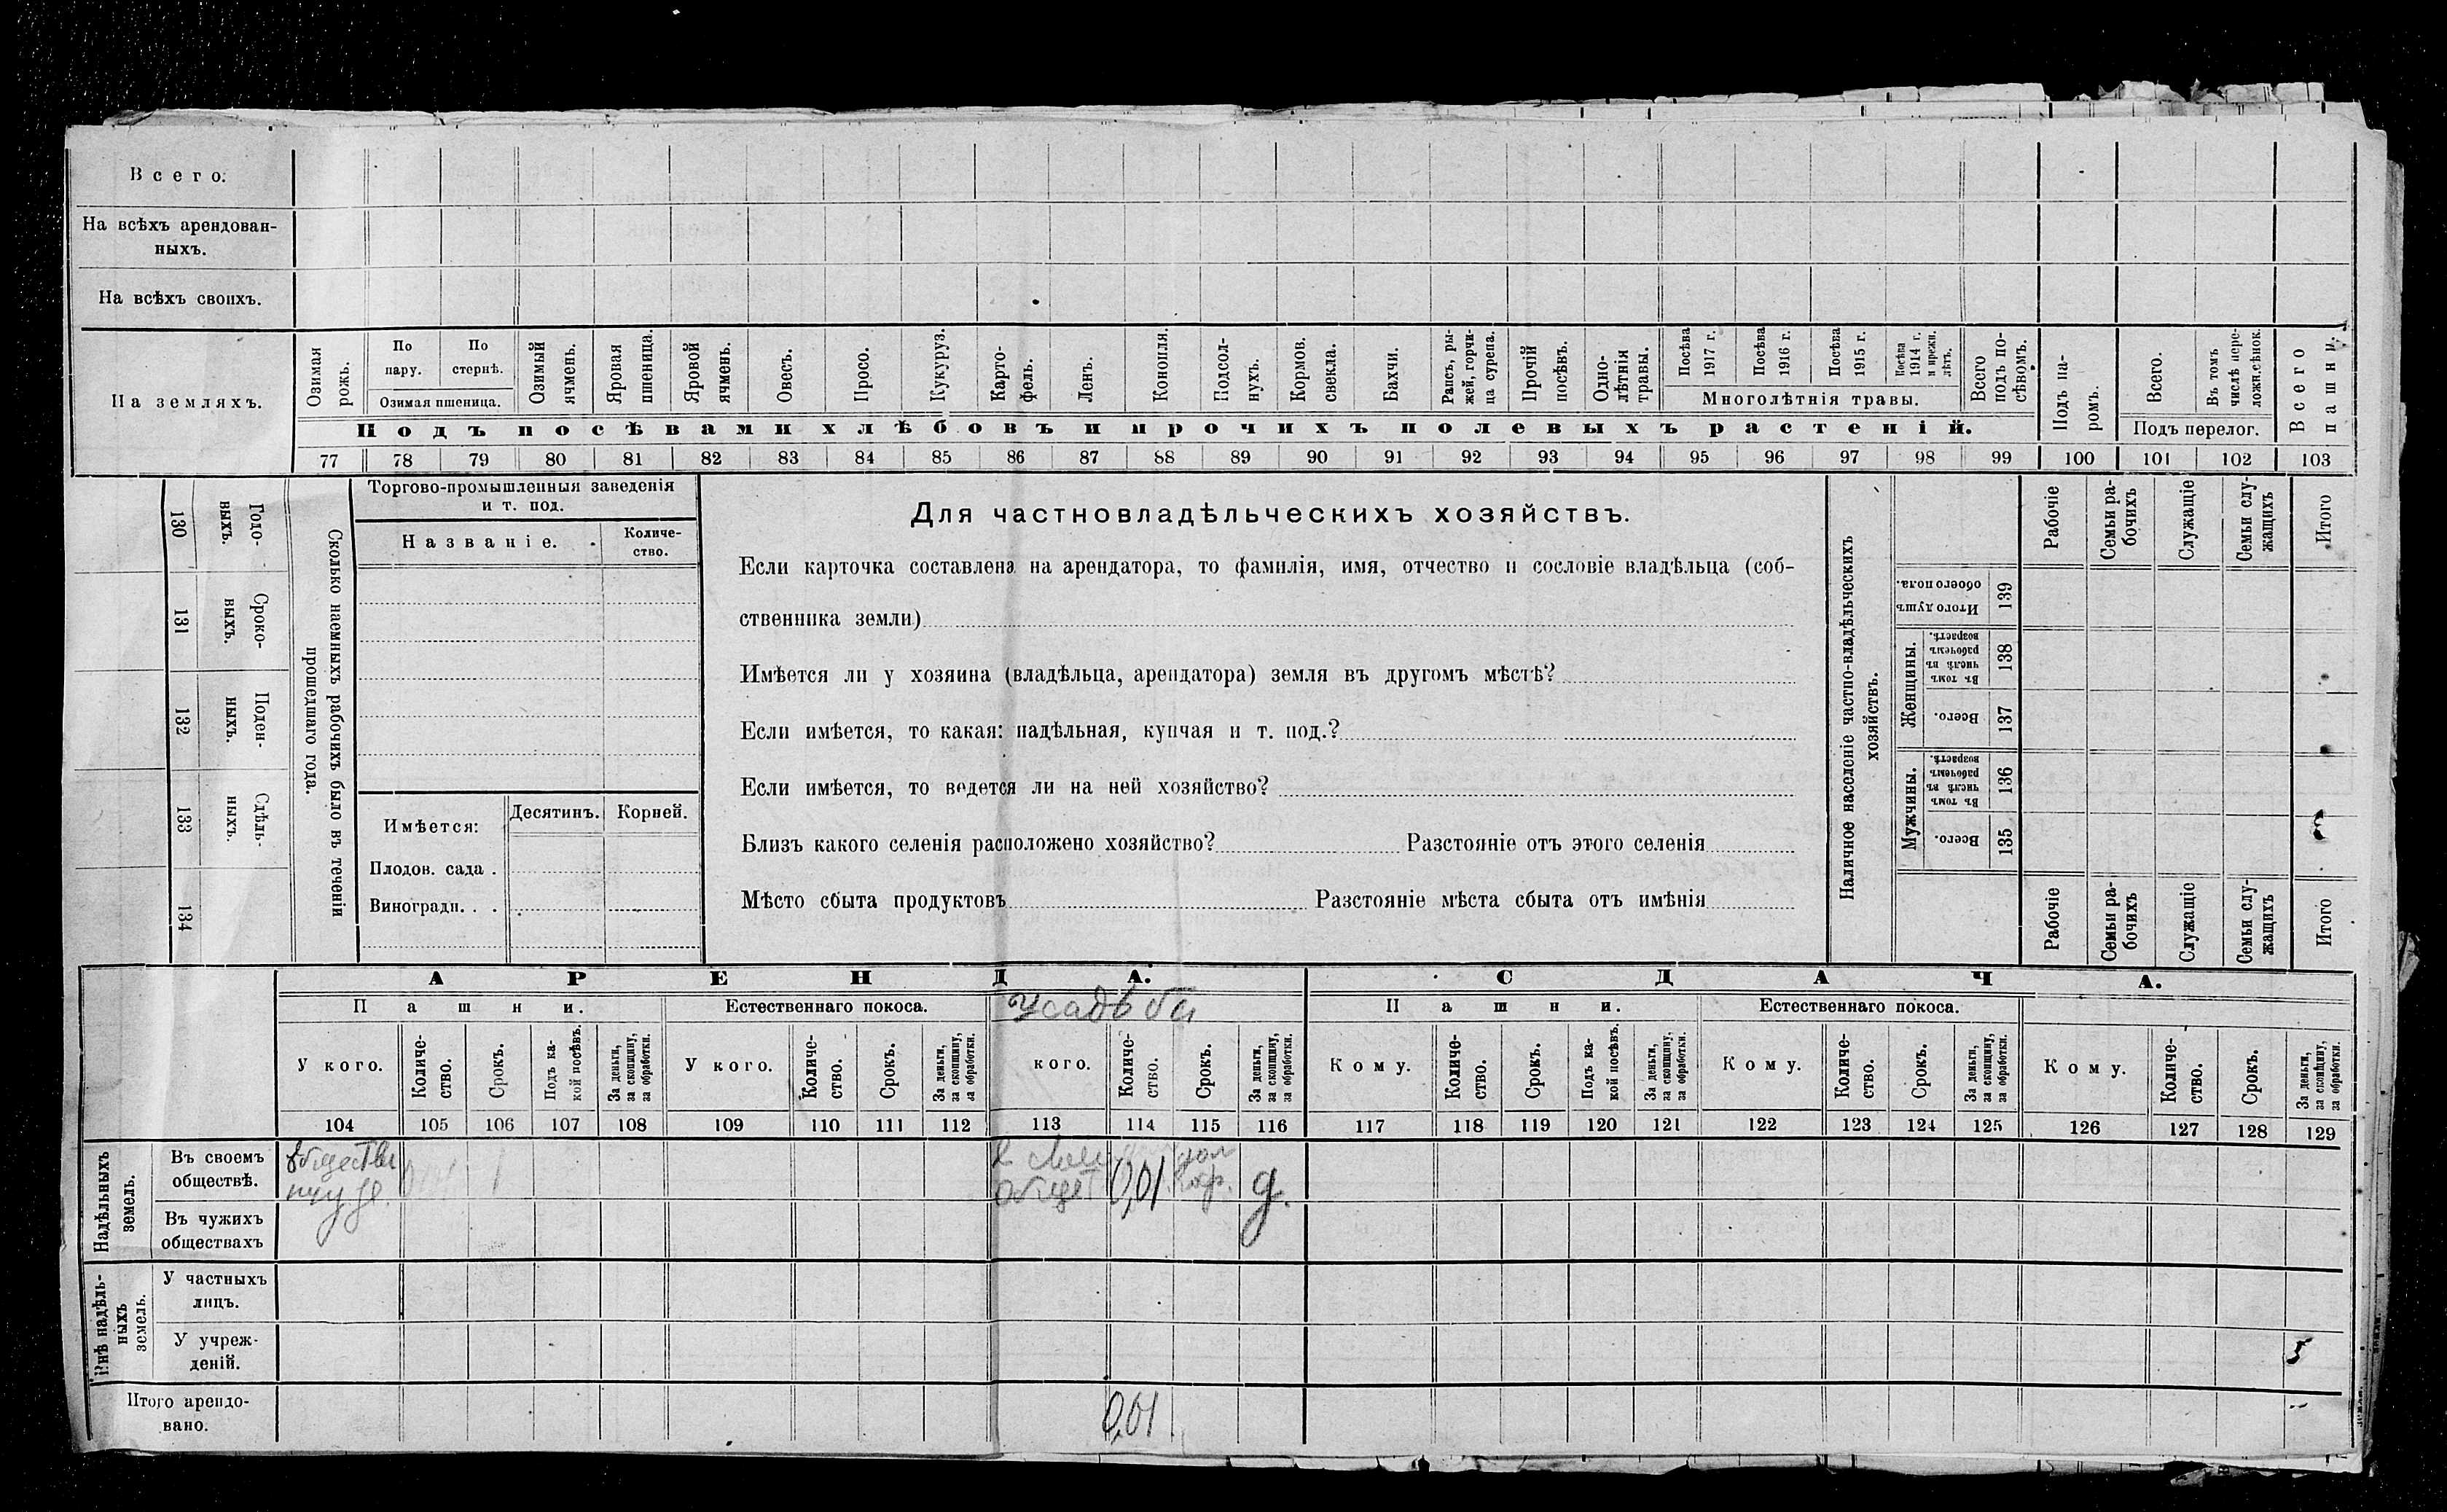 Всего.
На всѣхъ арендован-
ныхъ.
На всѣхъ своихъ.
На земляхъ.
Озимая рожь.
По пару.
По стернѣ.
Озимая пшеница.
Озимый ячмень.
Яровая пшеница.
Яровой ячмень.
Овесъ.
Просо.
Кукуруз.
Карто-
фель.
Ленъ.
Конопля.
Подсол-
нухъ.
Кормов. свекла.
Бахчи.
Рапсъ, ры-
жей, горчи-
ца сурепа.
Прочій посѣвъ.
Одно-
лѣтнія травы.
Посѣва 1917 г.
Посѣва 1916 г.
Посѣва 1915 г.
Посѣва 1914 г. и прежн. лѣтъ.
Многолѣтнія травы.
Всего подъ по-
сѣвомъ.
Подъ па-
ромъ.
Всего.
Въ томъ числѣ пере-
ложн. сѣнок.
Подъ перелог.
Всего пашни.
Подъ посѣвами хлѣбовъ и прочихъ полевыхъ растеній.
77 78 79 80 81 82 83 84 85 86 87 88 89 90 91 92 93 94 95 96 97 98 99 100 101 102 103
130
Годо-
выхъ.
131
Сроко-
выхъ.
132
Поден-
ныхъ.
133
Сдѣль-
ныхъ.
134
Сколько наемныхъ рабочихъ было въ теченіи
прошедшаго года.
Торгово-промышленныя заведенія
и т. под.
Названіе.
Количе-
ство.
Имѣется:
Десятинъ.
Корней.
Плодов. сада .
Виноградн. . .
Для частновладѣльческихъ хозяйствъ.
Если карточка составлена на арендатора, то фамилія, имя, отчество и сословіе владѣльца (соб-
ственника земли)
Имѣется ли у хозяина (владѣльца, арендатора) земля въ другомъ мѣстѣ?
Если имѣется, то какая: надѣльная, купчая и т. под.?
Если имѣется, то ведется ли на ней хозяйство?
Близъ какого селенія расположено хозяйство? Разстояніе отъ этого селенія
Мѣсто сбыта продуктовъ Разстояніе мѣста сбыта отъ имѣнія
Наличное населеніе частно-владѣльческихъ
хозяйствъ.
Рабочіе
Семьи ра-
бочихъ
Служащіе
Семьи слу-
жащихъ
Итого
Итого душъ обоего пола.
139
Женщины.
Въ томъ числѣ въ рабочемъ возрастѣ.
138
Всего.
137
Мужчины.
Въ томъ числѣ въ рабочемъ возрастѣ.
136
Всего.
135
Рабочіе
Семьи ра-
бочихъ
Служащіе
Семьи слу-
жащихъ
Итого
АРЕНДА.
СДАЧА.
Пашни.
Естественнаго покоса.
Усадьба
Пашни.
Естественнаго покоса.
У кого.
Количе-
ство.
Срокъ.
Подъ ка-
кой посѣвъ.
За деньги,
за скопщину,
за обработки.
У кого.
Количе-
ство.
Срокъ.
За деньги,
за скопщину,
за обработки.
кого.
Количе-
ство.
Срокъ.
За деньги,
за скопщину,
за обработки.
Кому.
Количе-
ство.
Срокъ.
Подъ ка-
кой посѣвъ.
За деньги,
за скопщину,
за обработки.
Кому.
Количе-
ство.
Срокъ.
За деньги,
за скопщину,
за обработки.
Кому.
Количе-
ство.
Срокъ.
За деньги,
за скопщину,
за обработки.
104 105 106 107 108 109 110 111 112 113 114 115 116 117 118 119 120 121 122 123 124 125 126 127 128 129
Надѣльныхъ
земель.
Въ своемъ
обществѣ.
0,01
д.
Въ чужихъ
обществахъ
Внѣ надѣль-
ныхъ
земель.
У частныхъ
лицъ.
У учреж-
деній.
5
Итого арендо-
вано.
0,01